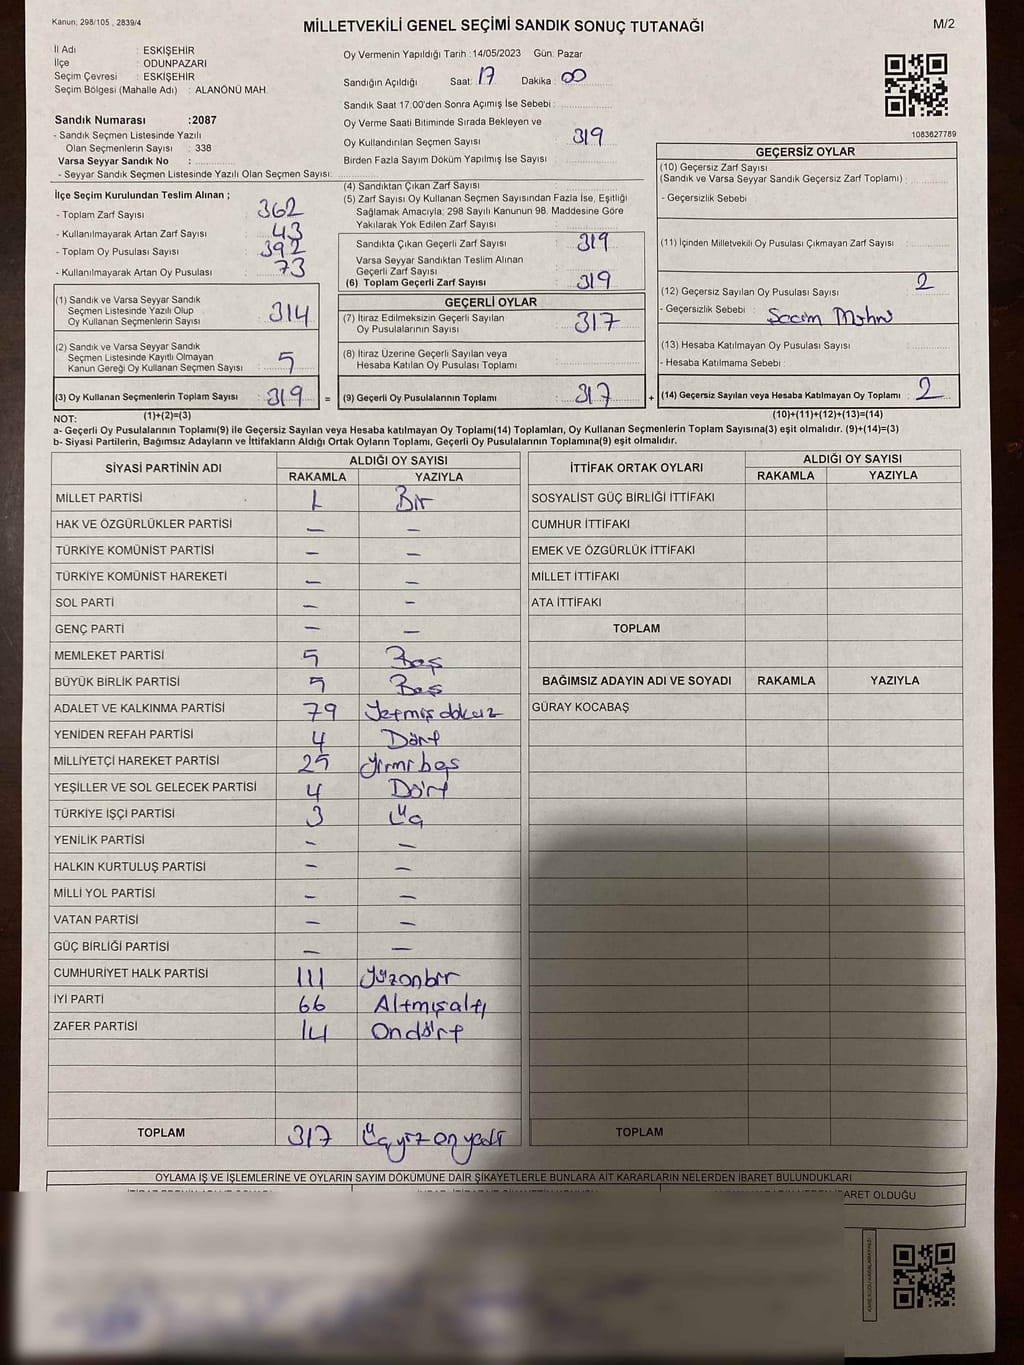 Kanun, 298/105 , 2839/4
MİLLETVEKİLİ GENEL SEÇİMİ SANDIK SONUÇ TUTANAĞI
M/2
İl Adı : ESKİŞEHİR
İlçe : ODUNPAZARI
Seçim Çevresi : ESKİŞEHİR
Seçim Bölgesi (Mahalle Adı) : ALANÖNÜ MAH.
Sandık Numarası :2087
- Sandık Seçmen Listesinde Yazılı
Olan Seçmenlerin Sayısı : 338
Varsa Seyyar Sandık No :
- Seyyar Sandık Seçmen Listesinde Yazılı Olan Seçmen Sayısı:
Oy Vermenin Yapıldığı Tarih :14/05/2023 Gün: Pazar
Sandığın Açıldığı Saat: 17 Dakika : 00
Sandık Saat 17.00'den Sonra Açımış İse Sebebi :
Oy Verme Saati Bitiminde Sırada Bekleyen ve
Oy Kullandırılan Seçmen Sayısı : 319
Birden Fazla Sayım Döküm Yapılmış İse Sayısı
1083627789
İlçe Seçim Kurulundan Teslim Alınan ;
- Toplam Zarf Sayısı : 362
- Kullanılmayarak Artan Zarf Sayısı : 43
- Toplam Oy Pusulası Sayısı : 392
- Kullanılmayarak Artan Oy Pusulası : 73
(1) Sandık ve Varsa Seyyar Sandık
Seçmen Listesinde Yazılı Olup
Oy Kullanan Seçmenlerin Sayısı : 314
(2) Sandık ve Varsa Seyyar Sandık
Seçmen Listesinde Kayıtlı Olmayan
Kanun Gereği Oy Kullanan Seçmen Sayısı : 5
(3) Oy Kullanan Seçmenlerin Toplam Sayısı : 319 =
(1)+(2)=(3)
(4) Sandıktan Çıkan Zarf Sayısı :
(5) Zarf Sayısı Oy Kullanan Seçmen Sayısından Fazla İse, Eşitliği
Sağlamak Amacıyla; 298 Sayılı Kanunun 98. Maddesine Göre
Yakılarak Yok Edilen Zarf Sayısı :
Sandıkta Çıkan Geçerli Zarf Sayısı : 319
Varsa Seyyar Sandıktan Teslim Alınan
Geçerli Zarf Sayısı :
(6) Toplam Geçerli Zarf Sayısı : 319
GEÇERLİ OYLAR
(7) İtiraz Edilmeksizin Geçerli Sayılan
Oy Pusulalarının Sayısı : 317
(8) İtiraz Üzerine Geçerli Sayılan veya
Hesaba Katılan Oy Pusulası Toplamı :
(9) Geçerli Oy Pusulalarının Toplamı : 317 +
GEÇERSİZ OYLAR
(10) Geçersiz Zarf Sayısı
(Sandık ve Varsa Seyyar Sandık Geçersiz Zarf Toplamı) :
- Geçersizlik Sebebi
(11) İçinden Milletvekili Oy Pusulası Çıkmayan Zarf Sayısı :
(12) Geçersiz Sayılan Oy Pusulası Sayısı : 2
- Geçersizlik Sebebi :
(13) Hesaba Katılmayan Oy Pusulası Sayısı :
- Hesaba Katılmama Sebebi :
(14) Geçersiz Sayılan veya Hesaba Katılmayan Oy Toplamı : 2
(10)+(11)+(12)+(13)=(14)
NOT:
a- Geçerli Oy Pusulalarının Toplamı(9) ile Geçersiz Sayılan veya Hesaba katılmayan Oy Toplamı(14) Toplamları, Oy Kullanan Seçmenlerin Toplam Sayısına(3) eşit olmalıdır. (9)+(14)=(3)
b- Siyasi Partilerin, Bağımsız Adayların ve İttifakların Aldığı Ortak Oyların Toplamı, Geçerli Oy Pusulalarının Toplamına(9) eşit olmalıdır.
SİYASİ PARTİNİN ADI ALDIĞI OY SAYISI
RAKAMLA YAZIYLA
MİLLET PARTİSİ 1 Bir
HAK VE ÖZGÜRLÜKLER PARTİSİ — —
TÜRKİYE KOMÜNİST PARTİSİ — —
TÜRKİYE KOMÜNİST HAREKETİ — —
SOL PARTİ — —
GENÇ PARTİ — —
MEMLEKET PARTİSİ 5 Beş
BÜYÜK BİRLİK PARTİSİ 5 Beş
ADALET VE KALKINMA PARTİSİ 79 Yetmiş dokuz
YENİDEN REFAH PARTİSİ 4 Dört
MİLLİYETÇİ HAREKET PARTİSİ 25 Yirmi beş
YEŞİLLER VE SOL GELECEK PARTİSİ 4 Dört
TÜRKİYE İŞÇİ PARTİSİ 3 Üç
YENİLİK PARTİSİ — —
HALKIN KURTULUŞ PARTİSİ — —
MİLLİ YOL PARTİSİ — —
VATAN PARTİSİ — —
GÜÇ BİRLİĞİ PARTİSİ — —
CUMHURİYET HALK PARTİSİ 111 Yüzonbir
İYİ PARTİ 66 Altmışaltı
ZAFER PARTİSİ 14 Ondört
TOPLAM 317 Üçyüz on yedi
İTTİFAK ORTAK OYLARI ALDIĞI OY SAYISI
RAKAMLA YAZIYLA
SOSYALİST GÜÇ BİRLİĞİ İTTİFAKI
CUMHUR İTTİFAKI
EMEK VE ÖZGÜRLÜK İTTİFAKI
MİLLET İTTİFAKI
ATA İTTİFAKI
TOPLAM
BAĞIMSIZ ADAYIN ADI VE SOYADI RAKAMLA YAZIYLA
GÜRAY KOCABAŞ
TOPLAM
OYLAMA İŞ VE İŞLEMLERİNE VE OYLARIN SAYIM DÖKÜMÜNE DAİR ŞİKAYETLERLE BUNLARA AİT KARARLARIN NELERDEN İBARET BULUNDUKLARI
ARET OLDUĞU